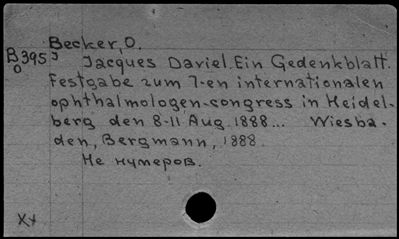 Becker, O.
B 395
o
Jacques Daviel. Ein Gedenkblatt.
Festgabe zum 7-en internationalen
ophthalmologen-congress in Heidel-
berg den 8-11 Aug. 1888... Wiesba-
den, Bergmann, 1888.
Не нумеров.
XX